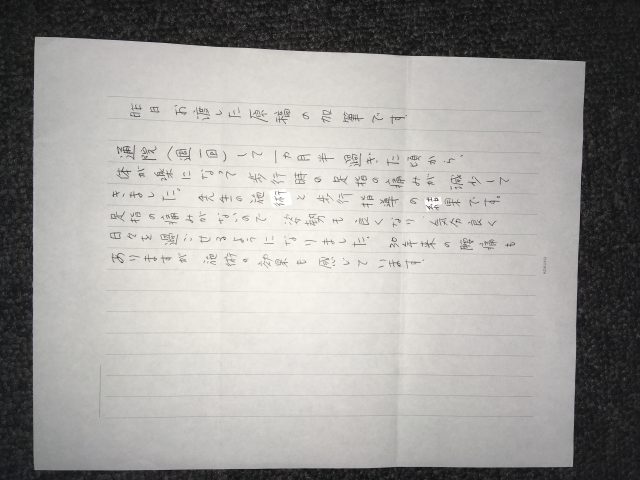 昨日 お渡しした原稿の加筆です
通院(週一回)して 一ヵ月半 過ぎた頃から、
体が楽になって 歩行時の足指の痛みが減少して
きました。 先生の施術と歩行指導の結果です。
足指の痛みがないので 姿勢も良くなり 気分良く
日々を過ごせるようになりました。 30年来の腰痛も
ありますが 施術の効果を感じています。